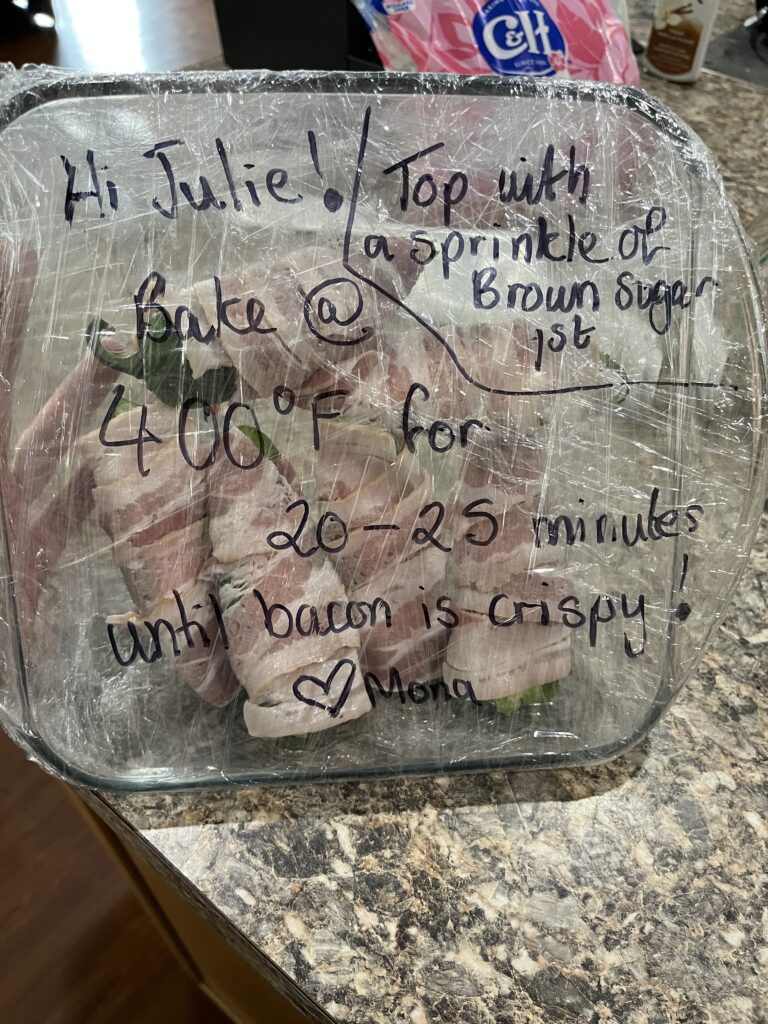 C&H
Hi Julie!
Top with
a sprinkle of
Brown Sugar
1st
Bake @
400°F for
20-25 minutes
until bacon is crispy!
♡ Mona